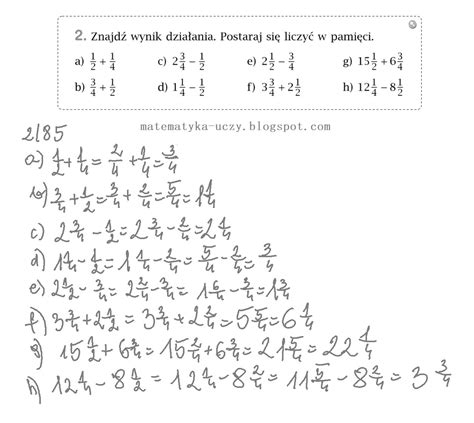 2. Znajdź wynik działania. Postaraj się liczyć w pamięci.
a) 1/2 + 1/4 c) 2 3/4 − 1/2 e) 2 1/2 − 3/4 g) 15 1/2 + 6 3/4
b) 3/4 + 1/2 d) 1 1/4 − 1/2 f) 3 3/4 + 2 1/2 h) 12 1/4 − 8 1/2
matematyka-uczy.blogspot.com
2/85
a) 1/2 + 1/4 = 2/4 + 1/4 = 3/4
b) 3/4 + 1/2 = 3/4 + 2/4 = 5/4 = 1 1/4
c) 2 3/4 − 1/2 = 2 3/4 − 2/4 = 2 1/4
d) 1 1/4 − 1/2 = 1 1/4 − 2/4 = 5/4 − 2/4 = 3/4
e) 2 1/2 − 3/4 = 2 2/4 − 3/4 = 1 6/4 − 3/4 = 1 3/4
f) 3 3/4 + 2 1/2 = 3 3/4 + 2 2/4 = 5 5/4 = 6 1/4
g) 15 1/2 + 6 3/4 = 15 2/4 + 6 3/4 = 21 5/4 = 22 1/4
h) 12 1/4 − 8 1/2 = 12 1/4 − 8 2/4 = 11 5/4 − 8 2/4 = 3 3/4